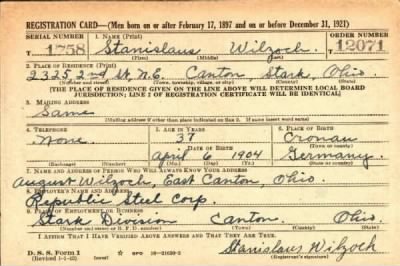 REGISTRATION CARD—(Men born on or after February 17, 1897 and on or before December 31, 1921)
SERIAL NUMBER
1. NAME (Print)
ORDER NUMBER
T 1758
Stanislaus Wilzoch
T 12071
(First) (Middle) (Last)
2. PLACE OF RESIDENCE (Print)
2325 2nd St. N.E. Canton, Stark, Ohio.
(Number and street) (Town, township, village, or city) (County) (State)
[THE PLACE OF RESIDENCE GIVEN ON THE LINE ABOVE WILL DETERMINE LOCAL BOARD
JURISDICTION; LINE 2 OF REGISTRATION CERTIFICATE WILL BE IDENTICAL]
3. MAILING ADDRESS
Same
[Mailing address if other than place indicated on line 2. If same insert word same]
4. TELEPHONE
5. AGE IN YEARS
6. PLACE OF BIRTH
None
37
Cronau
DATE OF BIRTH
(Town or county)
April 6 1904
Germany
(Exchange) (Number)
(Mo.) (Day) (Yr.)
(State or country)
7. NAME AND ADDRESS OF PERSON WHO WILL ALWAYS KNOW YOUR ADDRESS
August Wilzoch, East Canton, Ohio.
8. EMPLOYER'S NAME AND ADDRESS
Republic Steel Corp.
9. PLACE OF EMPLOYMENT OR BUSINESS
Stark Division Canton. Ohio.
(Number and street or R. F. D. number) (Town) (County) (State)
I AFFIRM THAT I HAVE VERIFIED ABOVE ANSWERS AND THAT THEY ARE TRUE.
D. S. S. Form 1
(Revised 1-1-42)
GPO 16—21630-2
Stanislaus Wilzoch
(Registrant's signature)